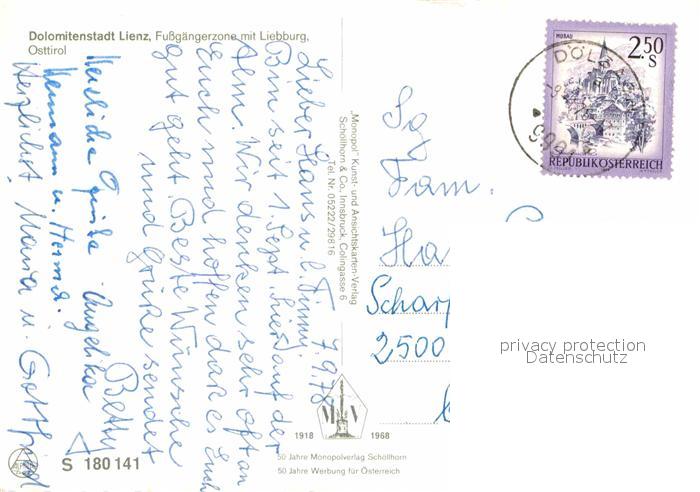 Dolomitenstadt Lienz, Fußgängerzone mit Liebburg,
Osttirol
7.9.78
Lieber Hans u. l. Finni,
Bin seit 1. Sept. hier auf der
Alm. Wir denken sehr oft an
Euch und hoffen daß es Euch
gut geht. Beste Wünsche
und Grüße sendet
Herzliche Grüße Angelika
Hermann u.
Herzlichst Maria u. Gottfried
"Monopol" Kunst- und Ansichtskarten-Verlag
Schöllhorn & Co. Innsbruck, Colingasse 6
Tel. Nr. 05222/29816
1918 1968
50 Jahre Monopolverlag Schöllhorn
50 Jahre Werbung für Österreich
S 180 141
Fam.
Ha
Schar
2500
MURAU
2.50
S
REPUBLIK ÖSTERREICH
privacy protection
Datenschutz